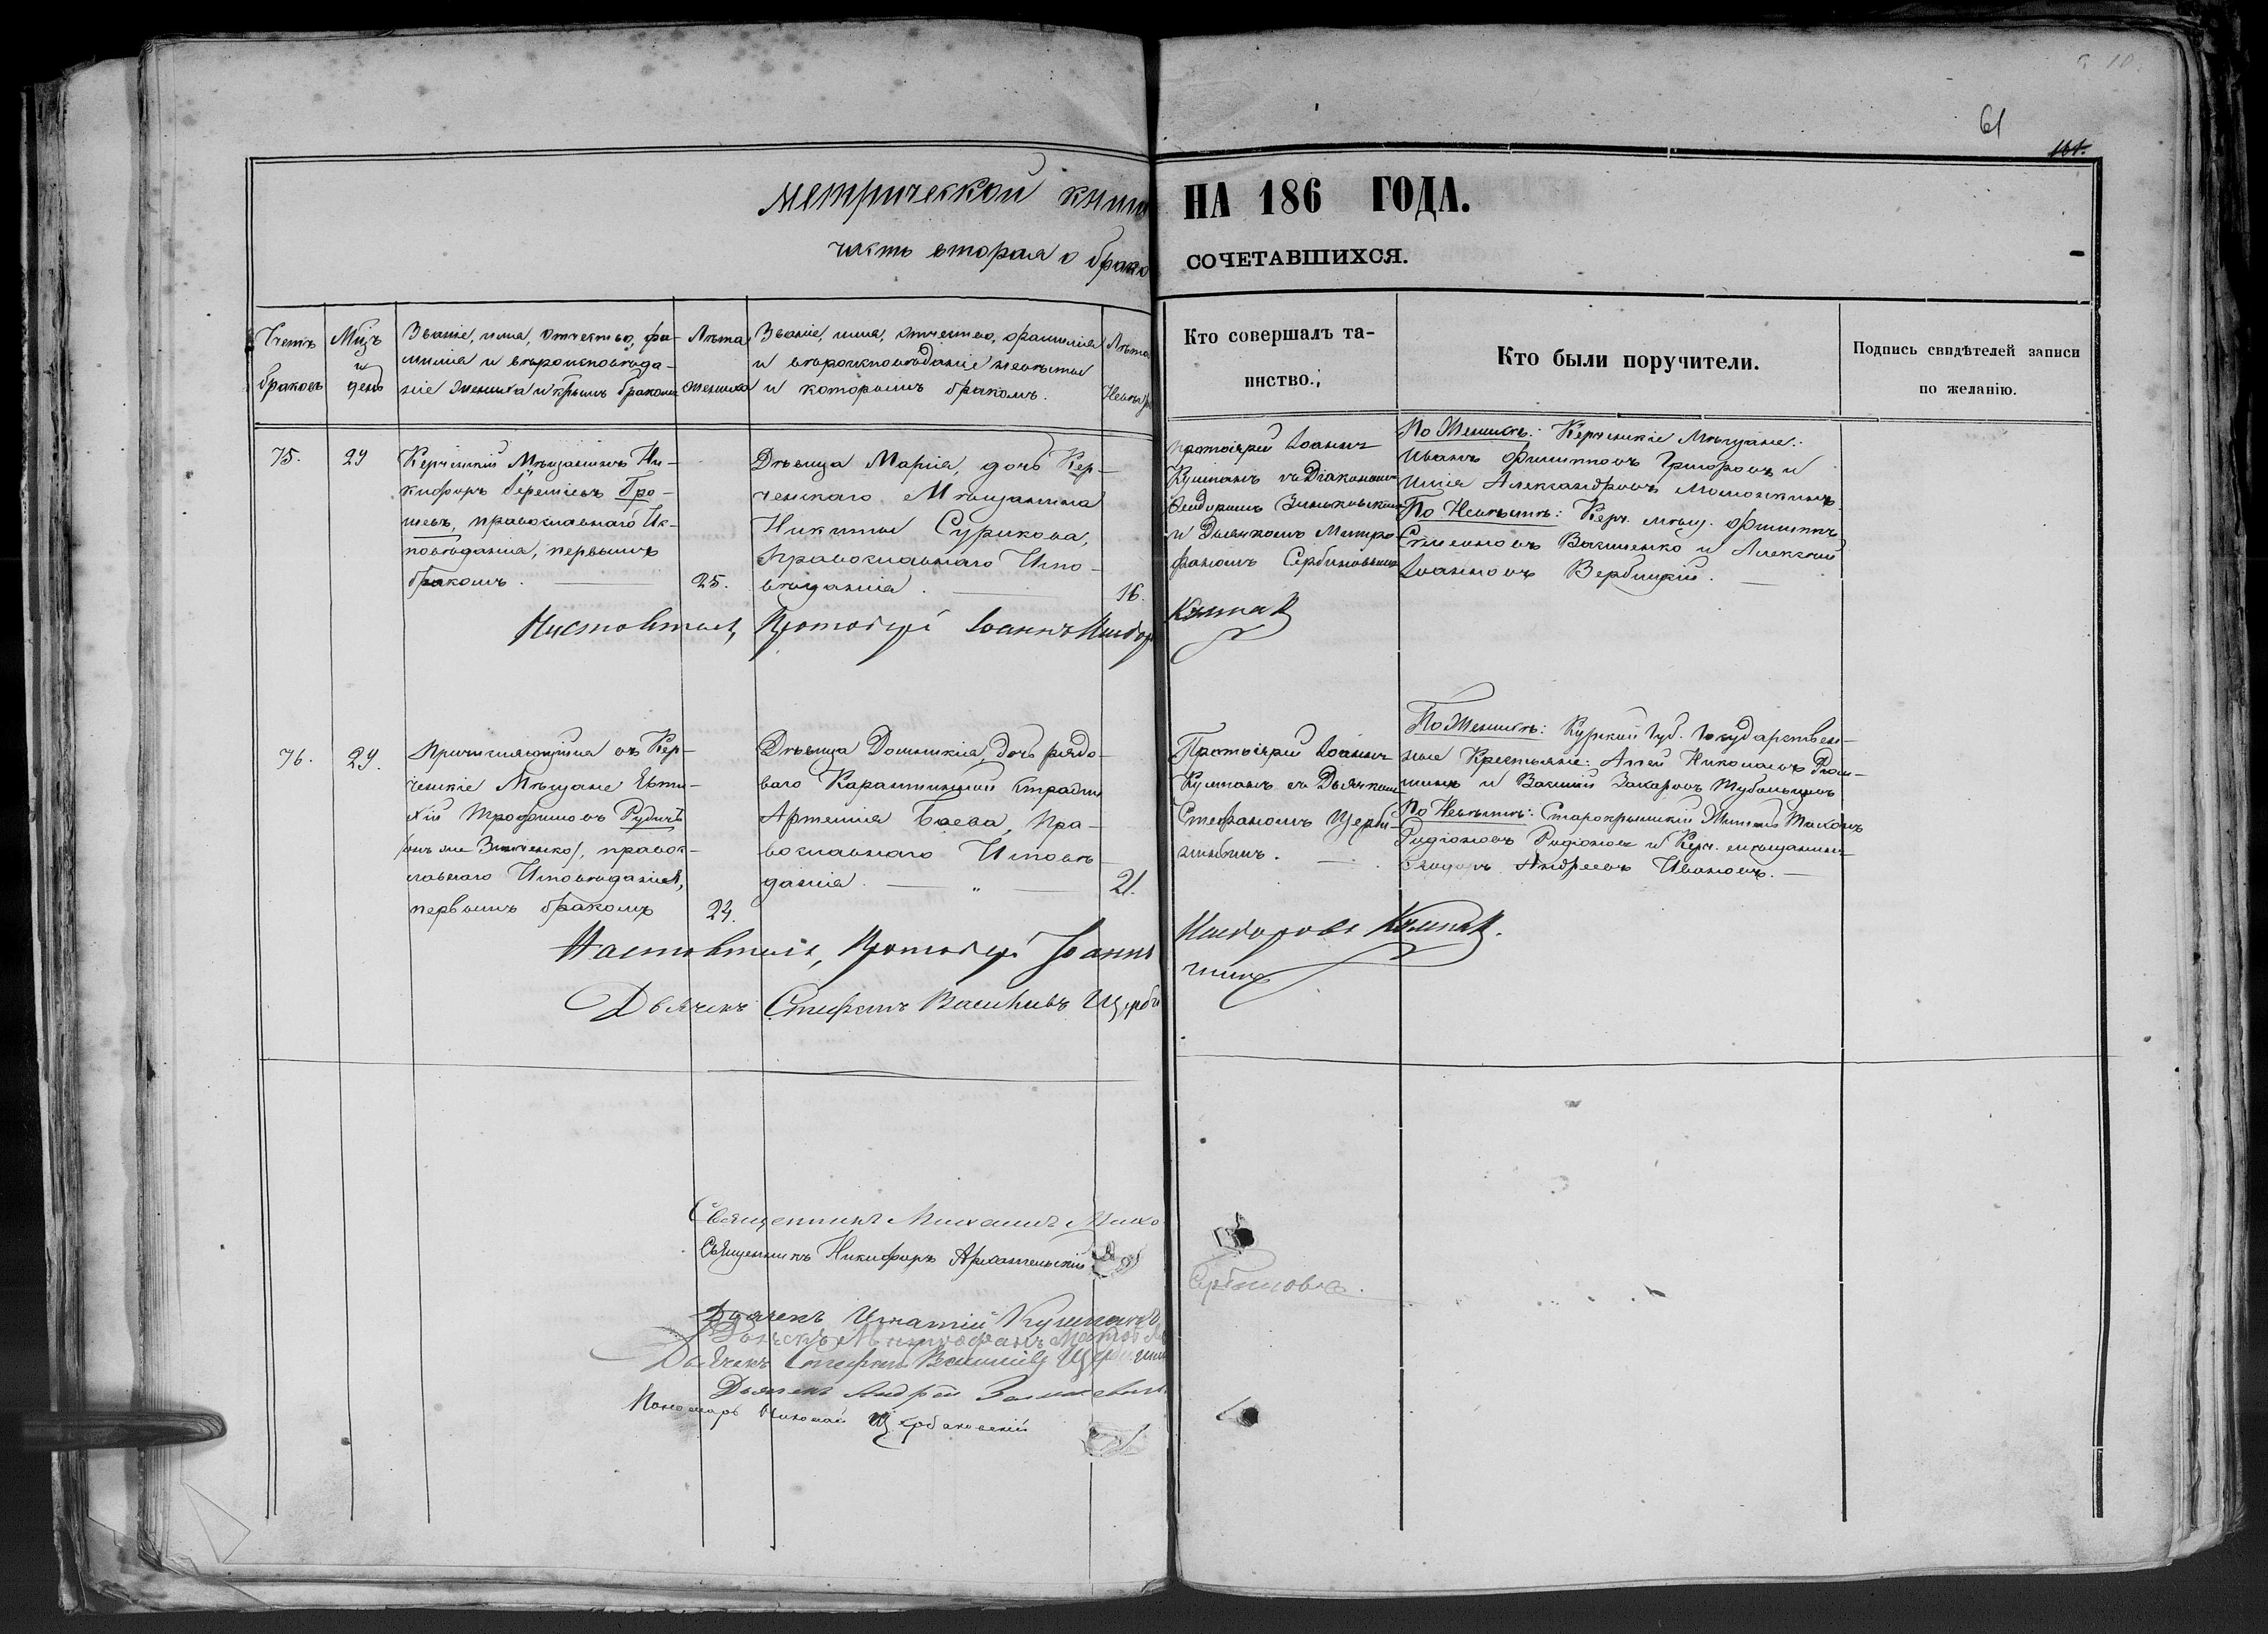 61
101.
метрической книги
НА 186 ГОДА.
часть вторая о брако
СОЧЕТАВШИХСЯ.
Счетъ браковъ
Мцъ и день
Званіе, имя, отчество, фа-
милія и вѣроисповѣда-
ніе жениха и кѣрымъ бракомъ
Лѣта жениха
Званіе, имя, отчество, фамилія
и вѣроисповѣданіе невѣсты
и которымъ бракомъ.
Лѣта Невѣсты
Кто совершалъ та-
инство.
Кто были поручители.
Подпись свидѣтелей записи
по желанію.
75.
29
Керченскій Мѣщанинъ Ни-
кифоръ Еремѣевъ Гро-
шевъ, православнаго Ис-
повѣданія, первымъ
бракомъ.
25.
Дѣвица Марія, дочь Кер-
ченскаго Мѣщанина
Никиты Сурикова,
православнаго Испо-
вѣданія.
16.
протоіерей Іоаннъ
Кушпанъ съ Діакономъ
и Дьячкомъ Митро-
фаномъ Сербиновымъ
По Женихѣ: Керченскіе Мѣщане:
Иванъ Филипповъ Григоровъ и
Илія Александровъ
По Невѣстѣ: Керч. мѣщ. Филиппъ
Семеновъ Василенко и Алексѣй
Іоанновъ Вербицкій.
Настоятель, Протоіерей Іоаннъ
76.
29.
Причисляющійся въ Кер-
ченскіе Мѣщане Евти-
хій Трофимовъ Рудичъ
(онъ же Зинченко), правос-
лавнаго Исповѣданія,
первымъ бракомъ
24.
Дѣвица Домникія, дочь рядо-
ваго Карантинной Стражи
Артемія Баева, пра-
вославнаго Исповѣ-
данія. — „ —
21.
Протоіерей Іоаннъ
съ Дьячкомъ
Стефаномъ Щерби-
нинымъ.
По Женихѣ: Курской Губ. Государствен-
ные Крестьяне: Николаевъ
и Василій Захаровъ
По Невѣстѣ: Старокрымскій Тихонъ
Родіоновъ Родіоновъ и Керч. мѣщанинъ
Андреевъ Ивановъ.
Настоятель, Протоіерей Іоаннъ
Дьячекъ Стефанъ Васильевъ Щерби
нинъ
Священникъ Михаилъ
Священникъ Никифоръ Архангельскій
Сербиновъ.
Дьячекъ Игнатій
Дьячекъ Стефанъ Васильевъ Щербинин
Дьячекъ Андрей
Пономарь Николай Щербановскій